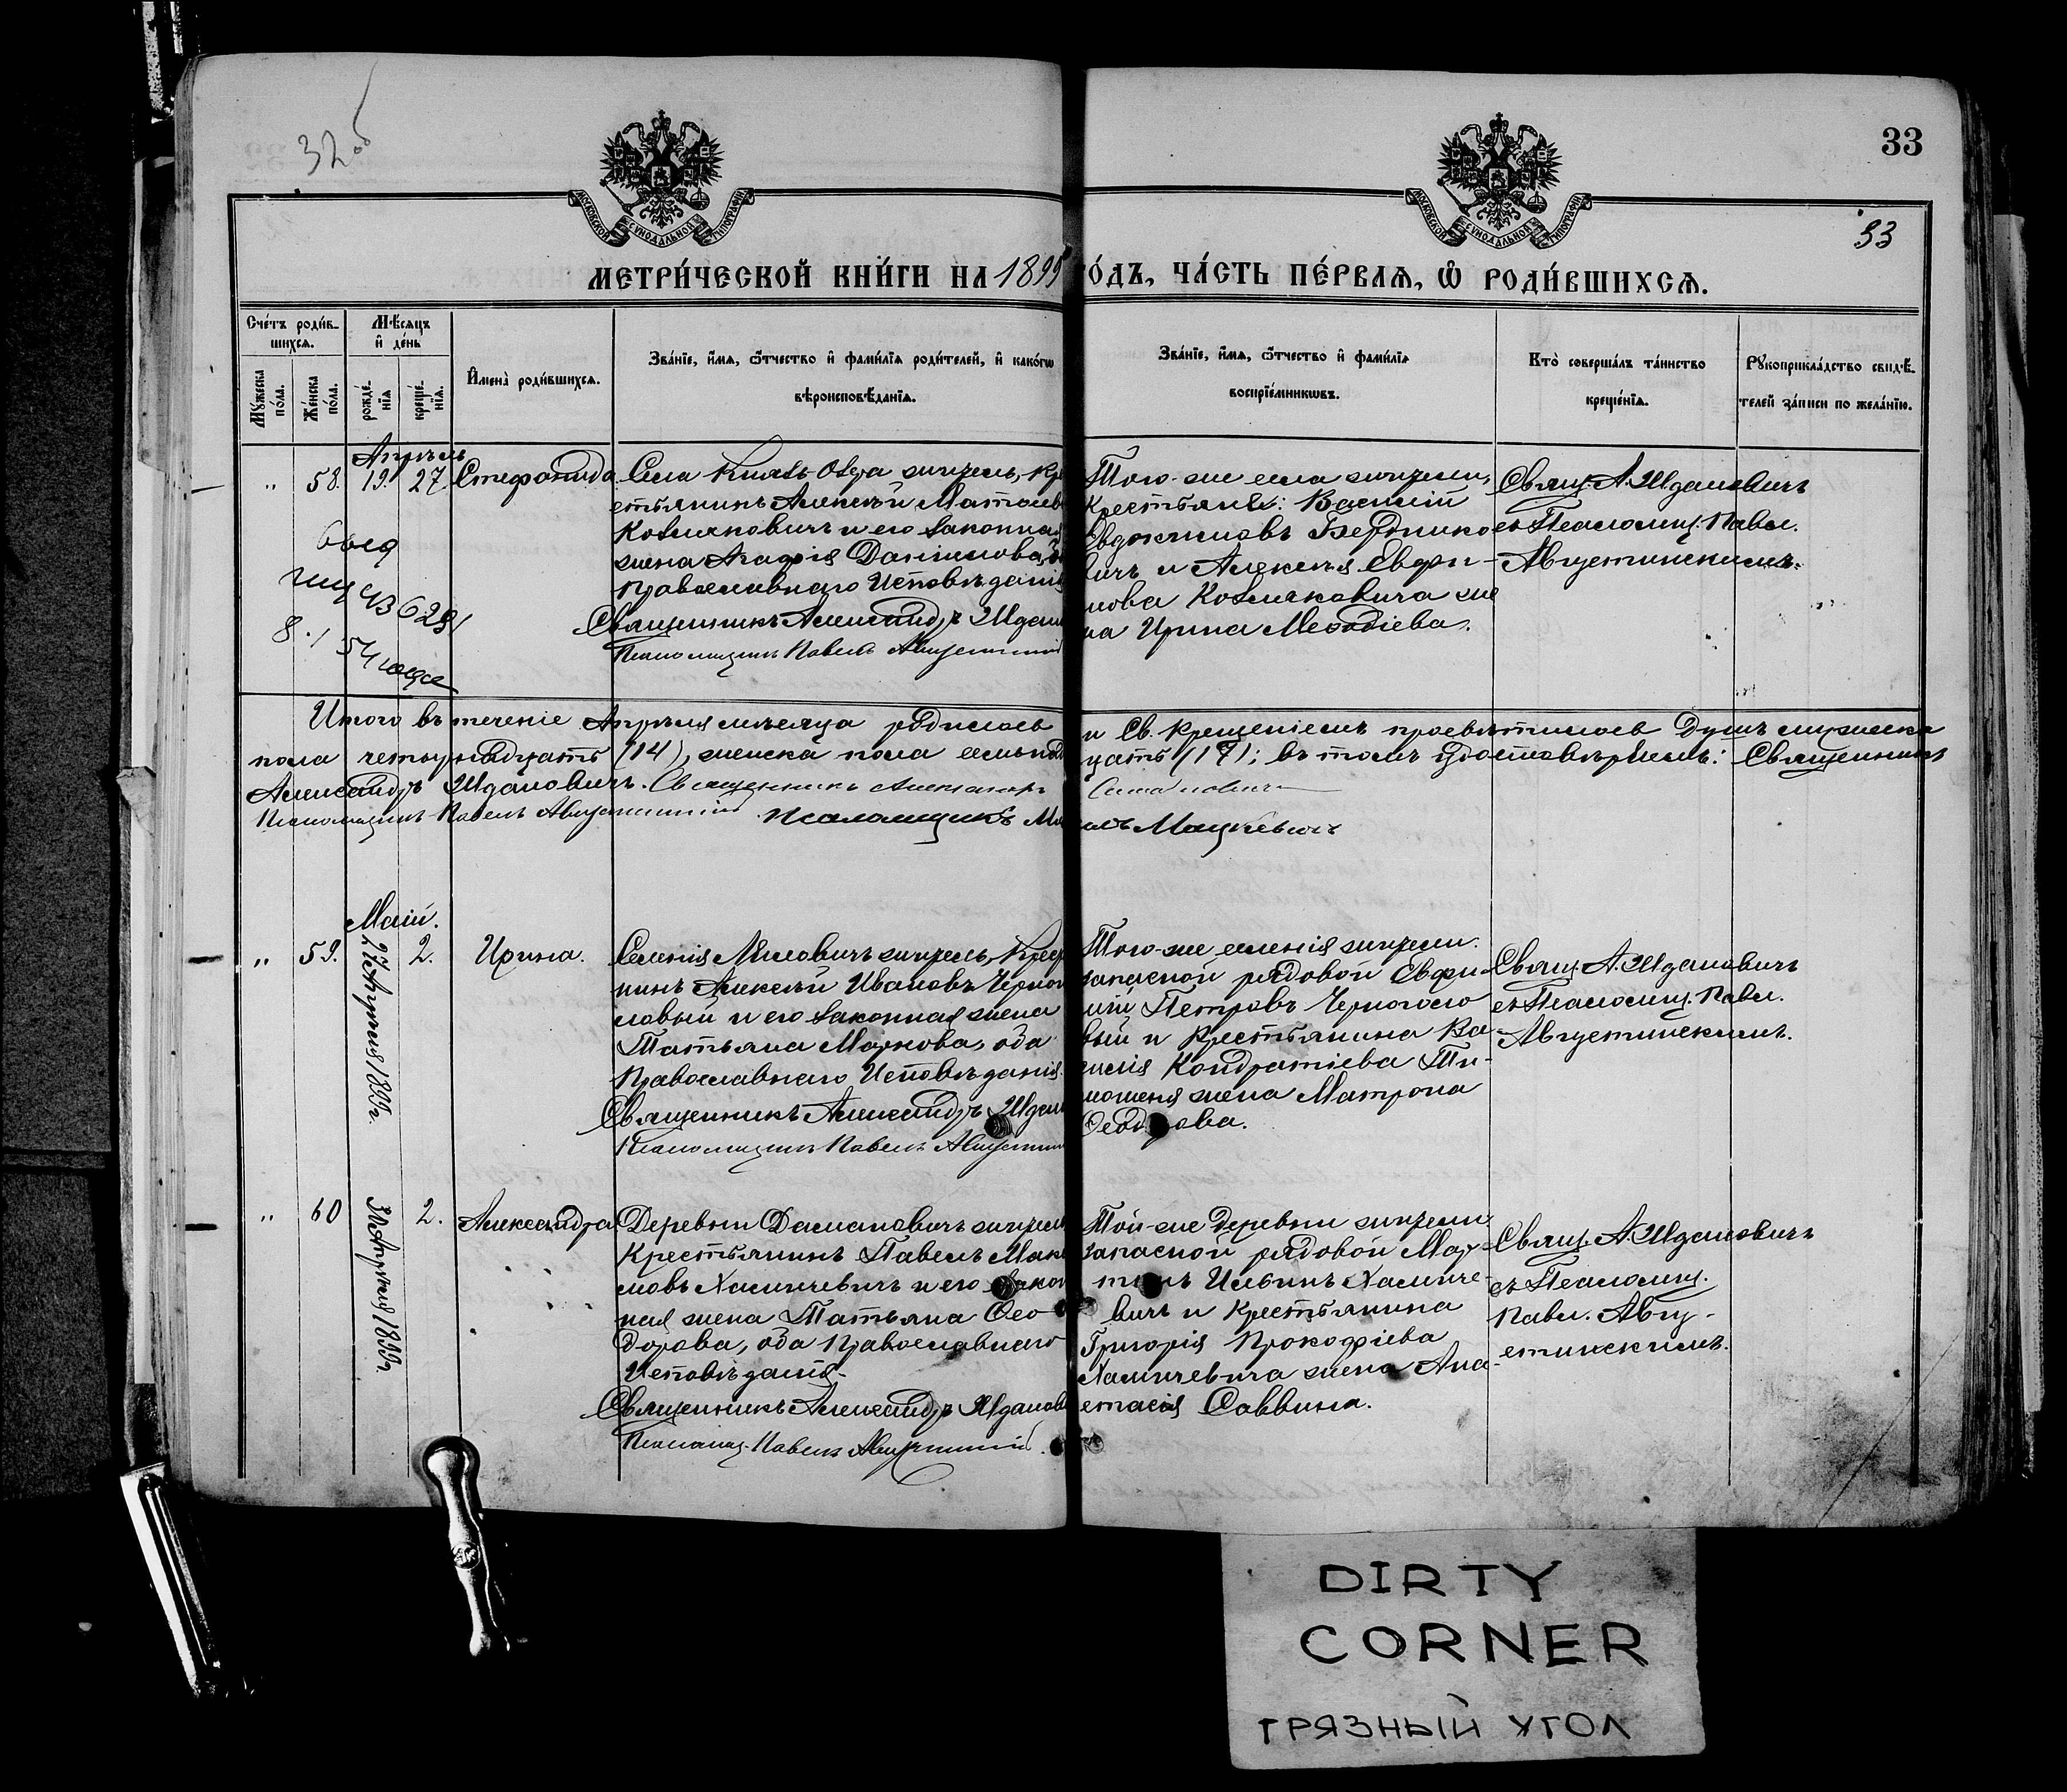 32 об
33
33
МОСКОВСКОЙ СѴНОДАЛЬНОЙ ТИПОГРАФІИ
МОСКОВСКОЙ СѴНОДАЛЬНОЙ ТИПОГРАФІИ
МЕТРИ́ЧЕСКОЙ КНИ́ГИ НА 1899
О́ДЪ, ЧА́СТЬ ПЕ́РВАѦ, Ѡ РОДИ́ВШИХСѦ.
Сче́тъ роди́в-
шихсѧ.
Мꙋ́жеска по́ла.
Же́нска по́ла.
Мѣ́сѧцъ
и҆ де́нь
рожде́-
нїѧ
креще́-
нїѧ.
И҆мена̀ роди́вшихсѧ.
Зва́нїе, и҆́мѧ, ѻ҆́тчество и҆ фами́лїѧ роди́телей, и҆ како́гѡ
вѣроисповѣ́данїѧ.
Зва́нїе, и҆́мѧ, ѻ҆́тчество и҆ фами́лїѧ
воспрїе́мникѡвъ.
Кто̀ соверша́лъ та́инство
креще́нїѧ.
Рꙋкоприкла́дство свидѣ́-
телей за́писи по жела́нїю.
Апрѣль
" 58. 19. 27. Стефанида
Села Князь-Озера житель, Кр
естьянинъ Алексѣй Матѳѣев
Козляковичъ и его законная
жена Агафія Даніилова,
Православнаго Исповѣданія
Священникъ Александръ Ждан
Псаломщикъ Павелъ Августински
Того-же села жители,
Крестьяне: Василій
Евдокимовъ Бердников
ичъ и Алексѣя Евфи-
мова Козляковича же
на Ирина Меѳодіева.
Свящ. А. Ждановичъ
съ Псаломщ. Павл.
Августинскимъ.
Итого въ теченіе Апрѣля мѣсяца родилось
и Св. Крещеніемъ просвѣтилось душъ мужеска
пола четырнадцать (14), женска пола семьнад
цать (17); въ томъ удостовѣряемъ: Священникъ
Александръ Ждановичъ. Священникъ Александръ
Псаломщикъ Павелъ Августинскій. Псаломщикъ
Мацкевичъ
Маій.
" 59. 27 Апрѣля 1899 г. 2. Ирина.
Селенія Милевичъ житель, Крес
нинъ Алексѣй Ивановъ Черног
ловый и его законная жена
Татьяна Маркова, оба
Православнаго Исповѣданія.
Священникъ Александръ Ждан
Псаломщикъ Павелъ Августин
Того-же селенія жители:
запасной рядовой Евфи-
мій Петровъ Черноголо
вый и Крестьянина Ва-
силія Кондратіева Ти-
мошеня жена Матрона
Ѳеодорова.
Свящ. А. Ждановичъ
съ Псаломщ. Павл.
Августинскимъ.
" 60 2. Александра
Деревни Дамановичъ житель
Крестьянинъ Павелъ Макс
мовъ Халимчевичъ и его закон
ная жена Татьяна Ѳео-
дорова, оба Православнаго
Исповѣданія.
Священникъ Александръ Жданов
Псаломщ. Павелъ Августинскій.
Той-же деревни жители:
запасной рядовой Мар-
тинъ Ильинъ Халимче-
вичъ и Крестьянина
Григорія Прокофіева
Халимчевича жена Ана-
стасія Саввина.
Свящ. А. Ждановичъ
съ Псаломщ.
Павл. Авгу-
стинскимъ.
DIRTY
CORNER
ГРЯЗНЫЙ УГОЛ